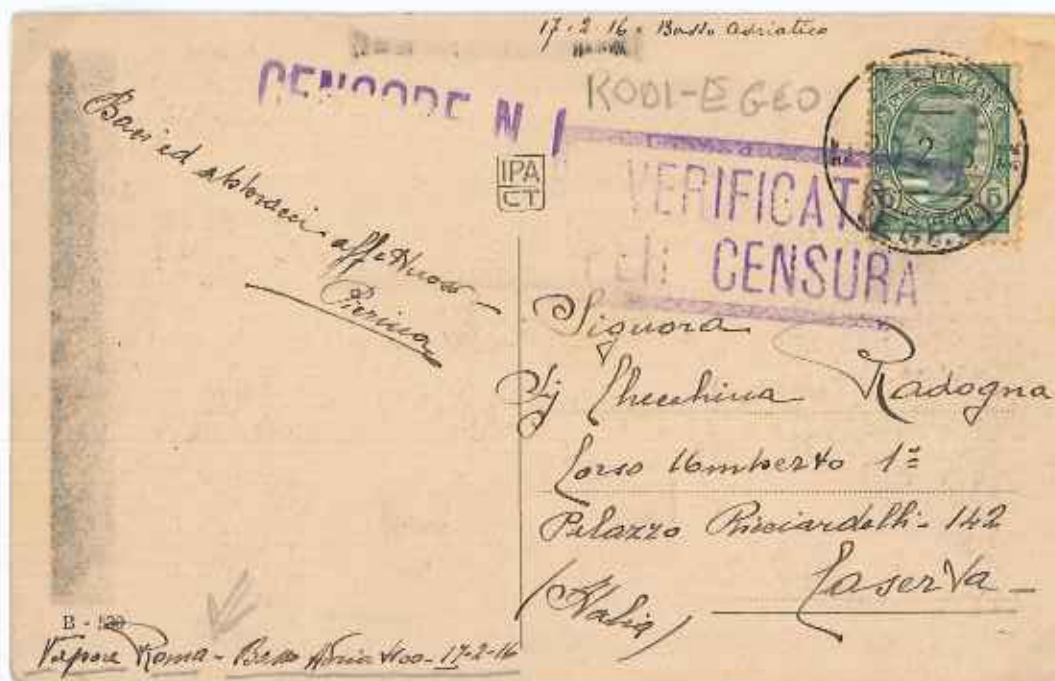 17-2-16 - Basso Adriatico
CENSORE N. 1
RODI-EGEO
IPA
CT
VERIFICATO
CENSURA
Baci ed abbracci affettuosi -
Pierina
Signora
Checchina Radogna
Corso Umberto 1º
Palazzo Ricciardelli - 142
Caserta -
(Italia)
B -
Vapore Roma - Basso Adriatico - 17-2-16